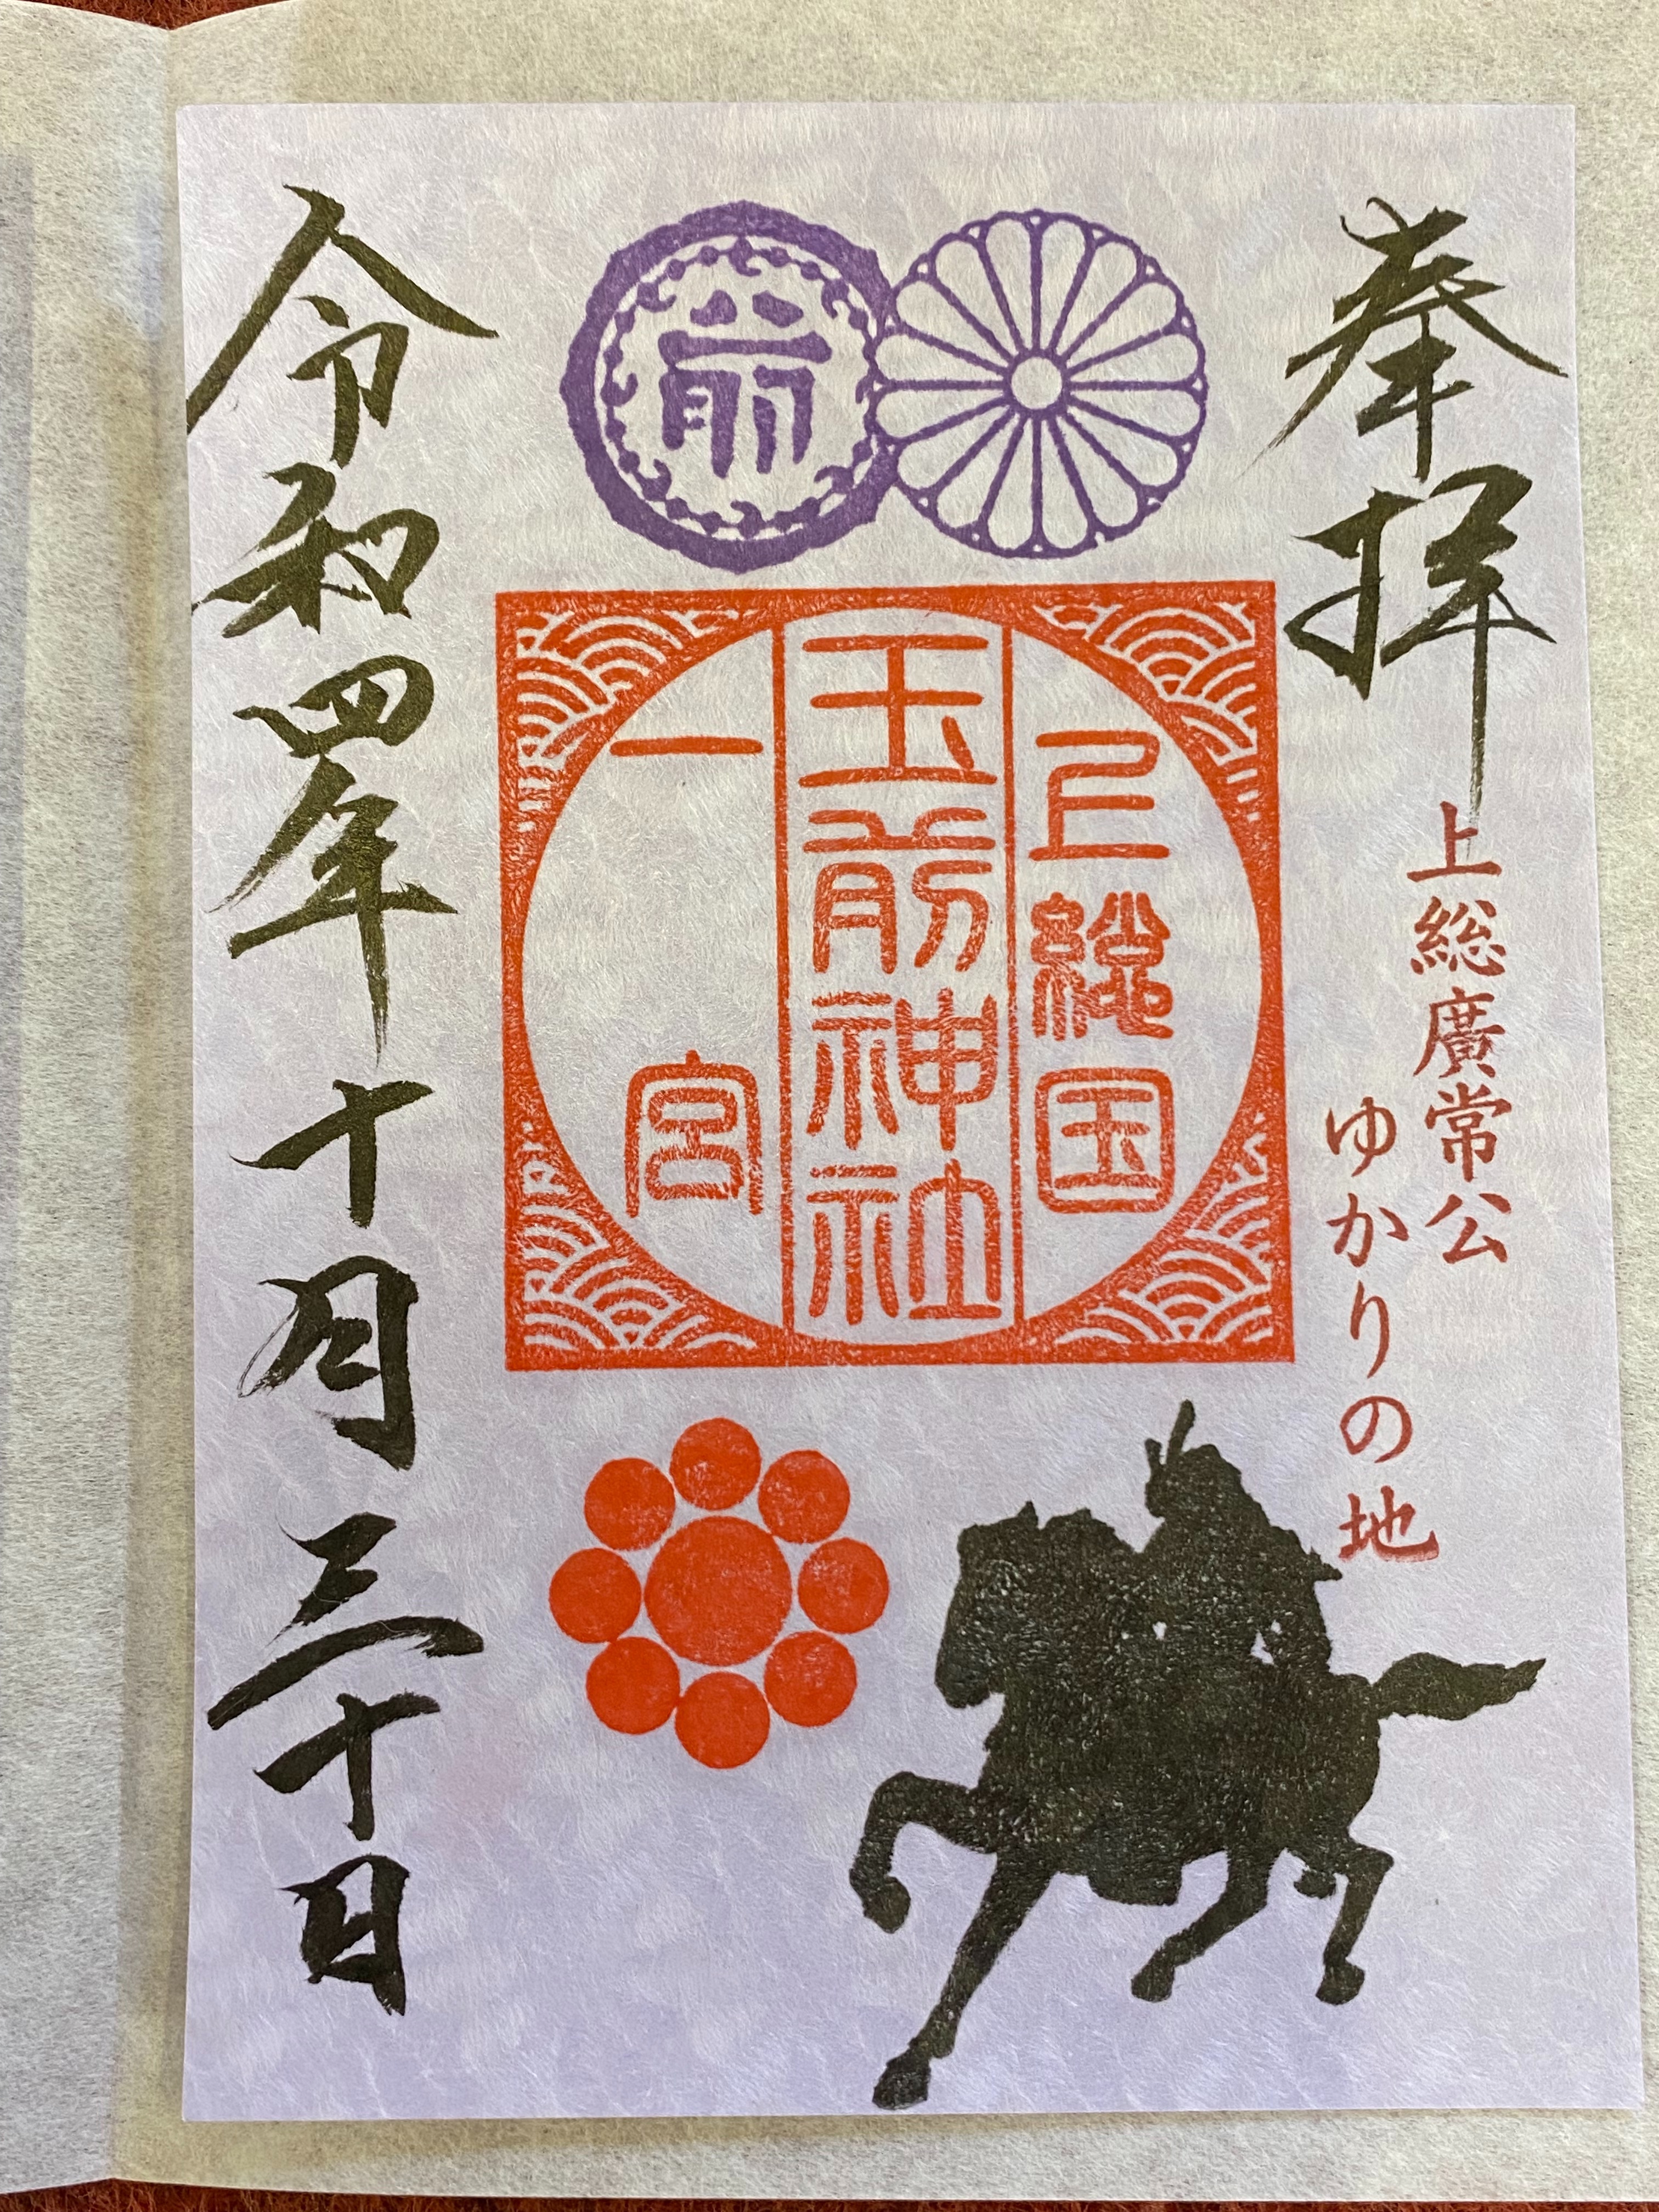 奉拝
上総廣常公
ゆかりの地
前
上総国
玉前神社
一宮
令和四年十月三十日